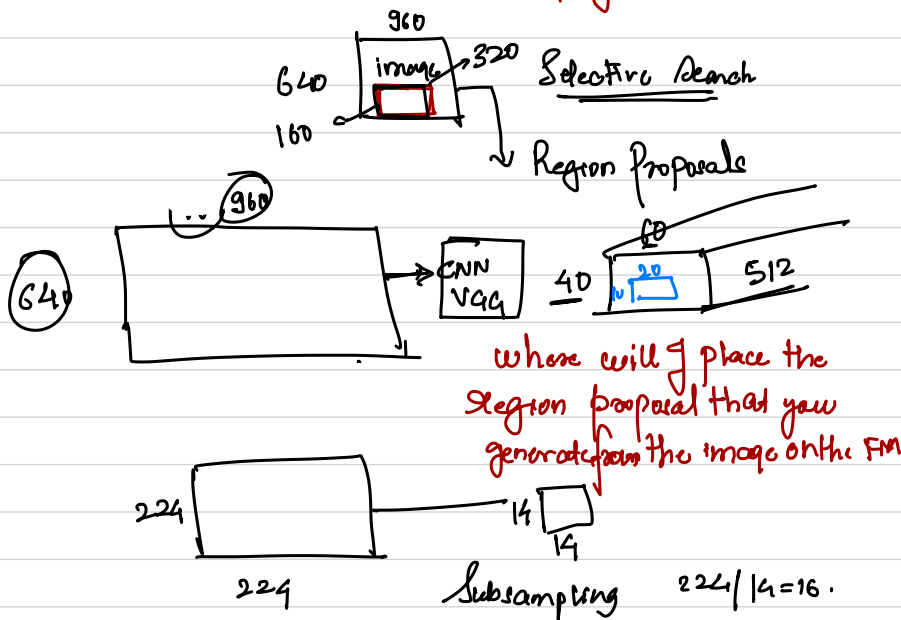 960
640
image
320
160
Selective Search
Region Proposals
960
640
CNN
VGG
60
40
20
10
512
where will I place the
region proposal that you
generate from the image on the FM
224
14
14
224
Subsampling 224/14=16.